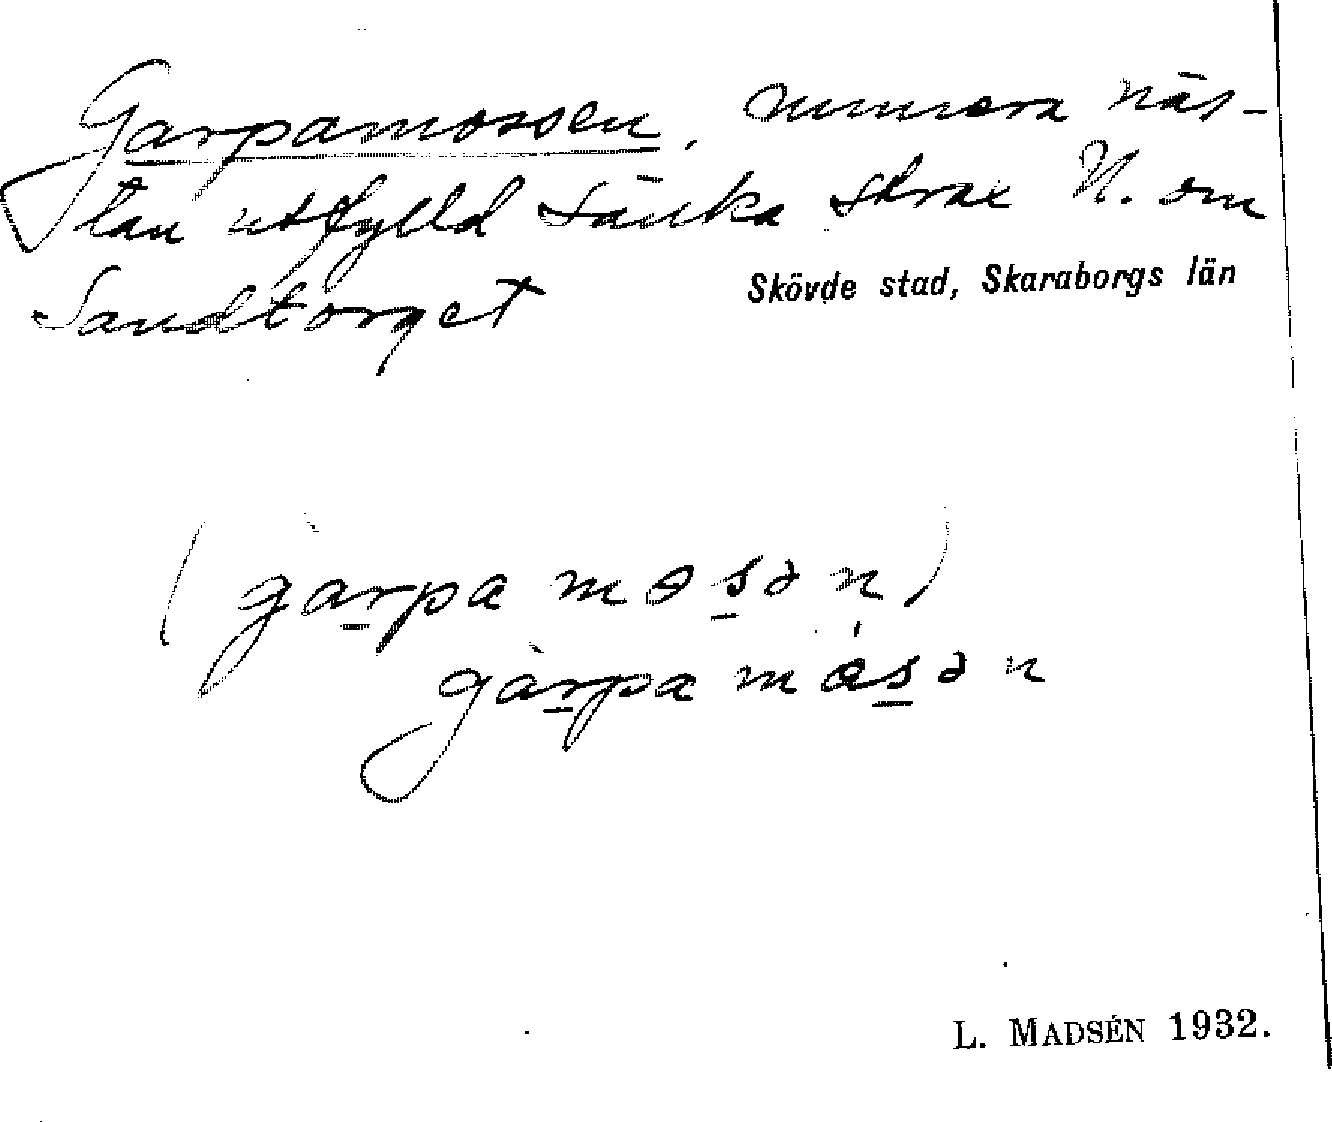 Garpamossen, numera näs-
tan utfylld sänka strax N. om
Sandtorget
Skövde stad, Skaraborgs län
(garpa mosən)
gàrpa mósən
L. MADSÉN 1932.